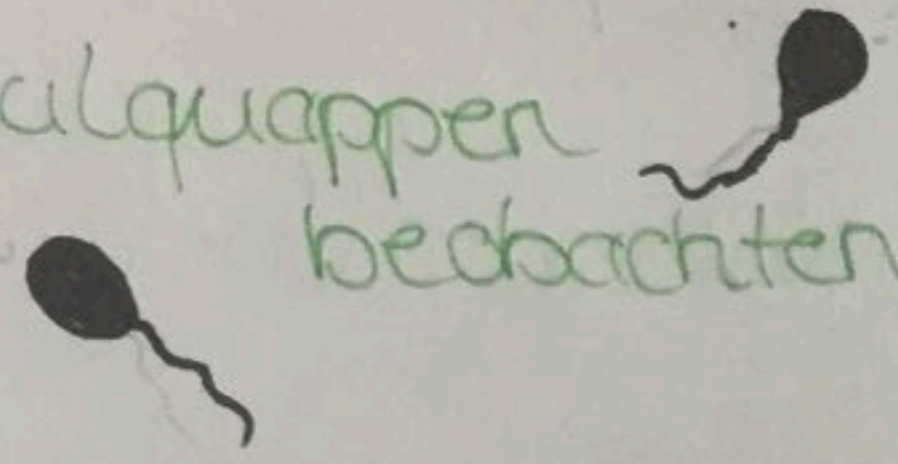 ulquappen
beobachten